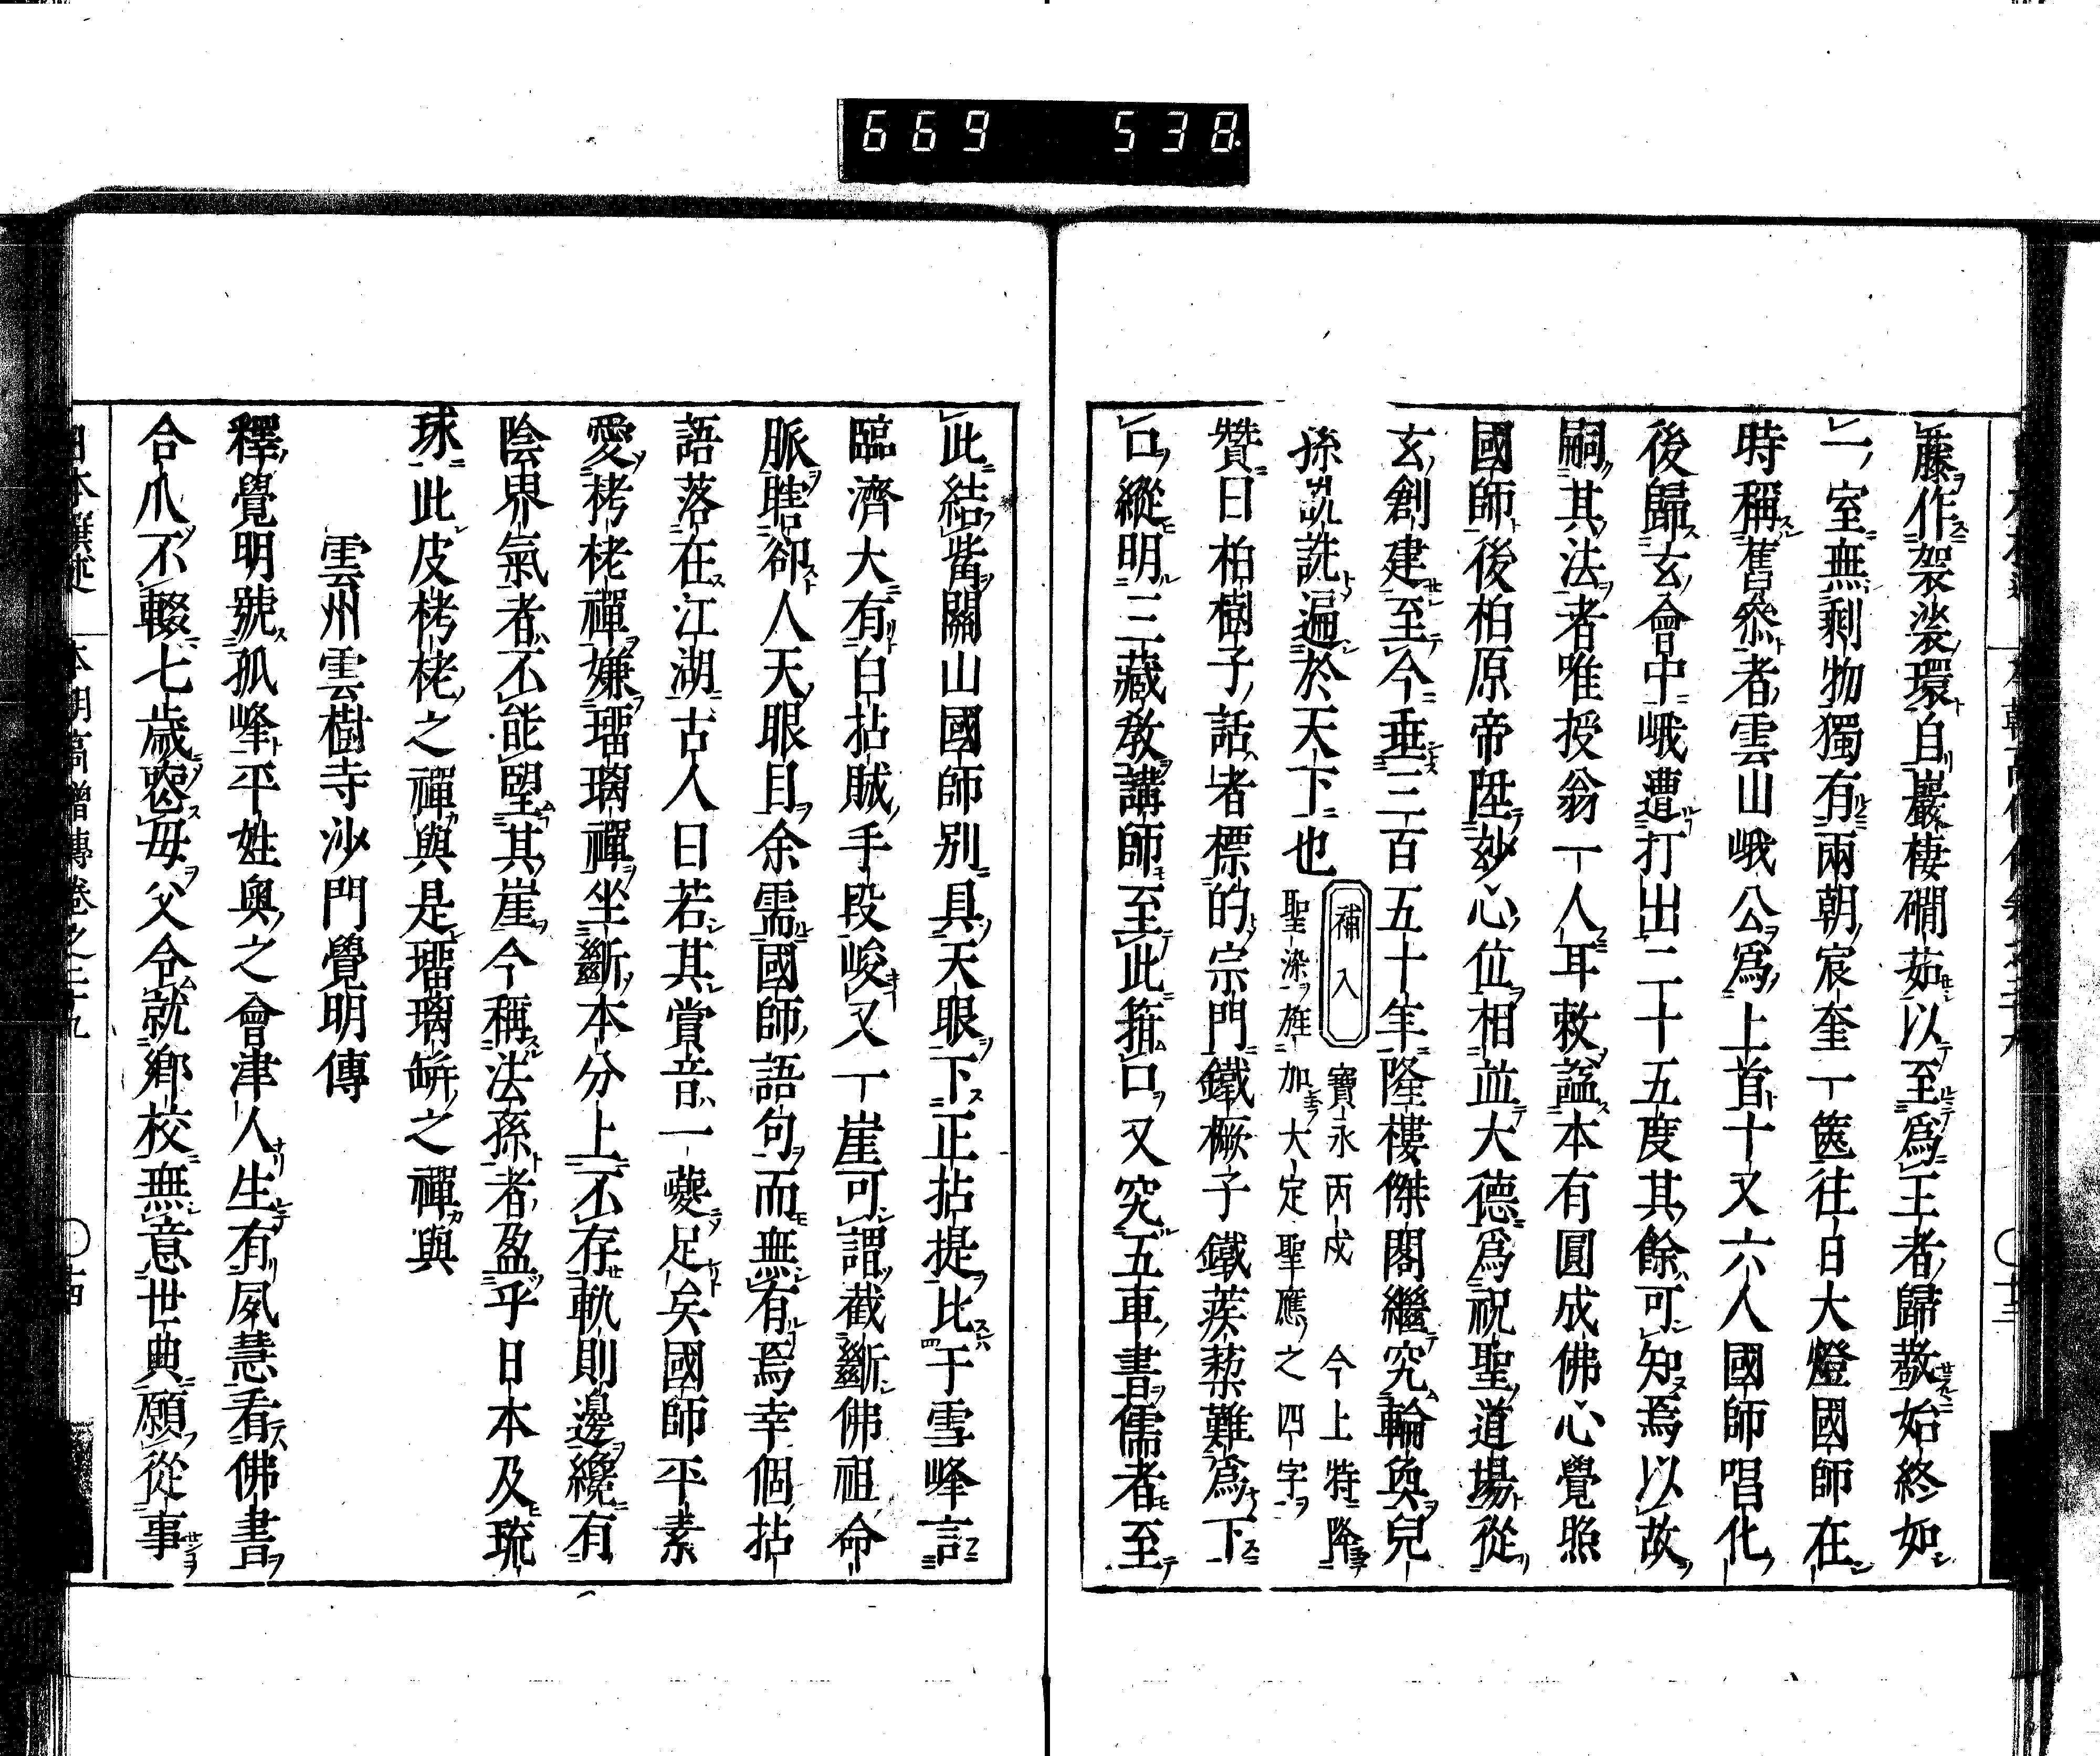 669 538
藤作袈裟環自巖棲磵茹以至為王者歸敬始終如
一室無剩物獨有兩朝宸奎一篋往日大燈國師在
時稱舊參者雲山峨公為上首十又六人國師唱化
後歸玄會中峨遭打出二十五度其餘可知焉以故
嗣其法者唯授翁一人耳敕諡本有圓成佛心覺照
國師後柏原帝陞玅心位相並大德為祝聖道場從
玄創建至今垂三百五十年隆樓傑閣繼究輪奐兒
孫詵詵遍於天下也
補入
寶永丙戌 今上特降
聖染旌加大定聖應之四字
贊曰柏樹子話者標的宗門鐵橛子鐵蒺蔾難為下
口縱明三藏教講師至此箝口又究五車書儒者至
此結觜關山國師別具天眼下正拈提比于雪峰言
臨濟大有白拈賊手段峻又一崖可謂截斷佛祖命
脈瞎卻人天眼目余需國師語句而無有焉幸個拈
語落在江湖古人曰若其賞音一夔足矣國師平素
愛栲栳禪嫌瑠璃禪坐斷本分上不存軌則邊纔有
陰界氣者不能望其崖今稱法孫者盈乎日本及琉
球此皮栲栳之禪與是瑠璃缾之禪與
雲州雲樹寺沙門覺明傳
釋覺明號孤峰平姓奧之會津人生有夙慧看佛書
合爪不輟七歲喪母父令就鄉校無意世典願從事
日本撰述 本朝高僧傳卷之二十九 十四